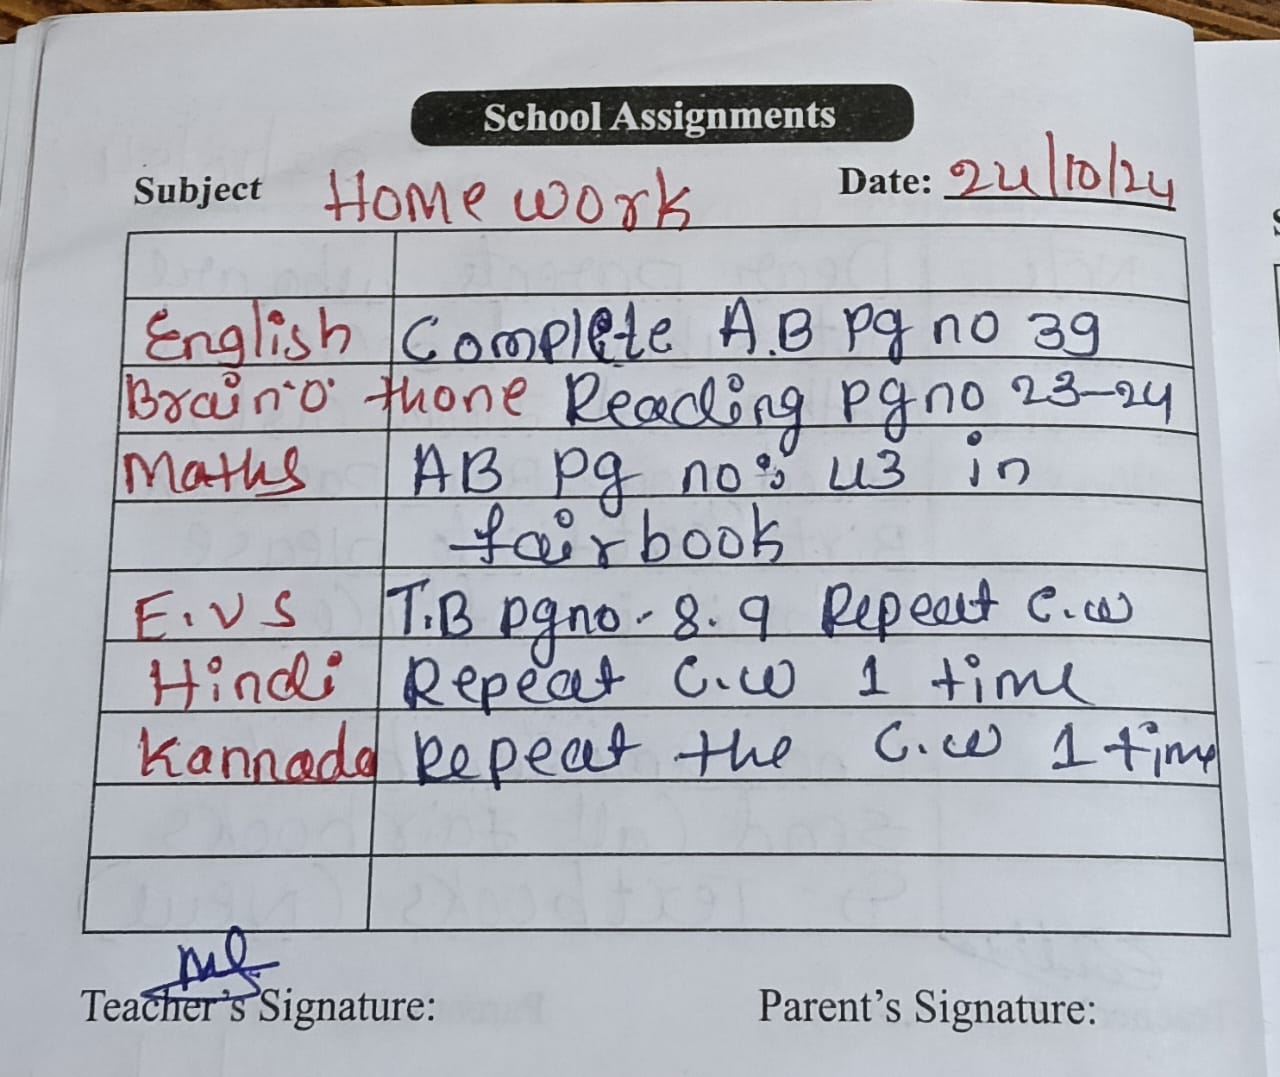 School Assignments
Subject Home work Date: 24/10/24
English Complete A.B pg no 39
Brain·o· thone Reading pg no 23-24
Maths AB pg no: 43 in
fair book
E.V S T.B pg no - 8.9 Repeat C.w
Hindi Repeat C.w 1 time
Kannada Repeat the C.w 1 time
Teacher's Signature: Parent's Signature: